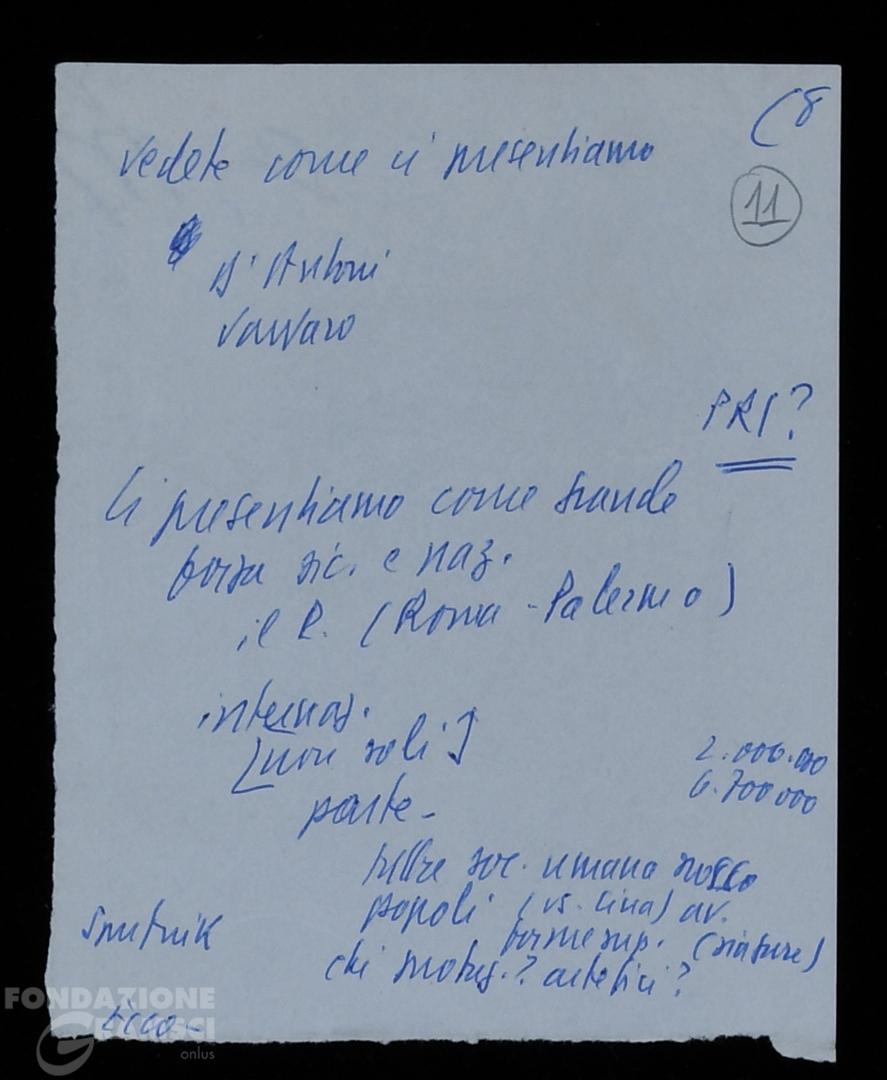 (8
vedete come ci presentiamo
11
D'Antoni
Varvaro
PRI?
Ci presentiamo come grande
forza sic. e naz.
il R. (Roma - Palermo)
internaz.
[non soli]
2.000.000
6.700000
parte -
soc. umana
popoli (us. Cina) av.
forme sup.
Sputnik
chi ? artefici?
Ecco -
FONDAZIONE
GRAMSCI
onlus